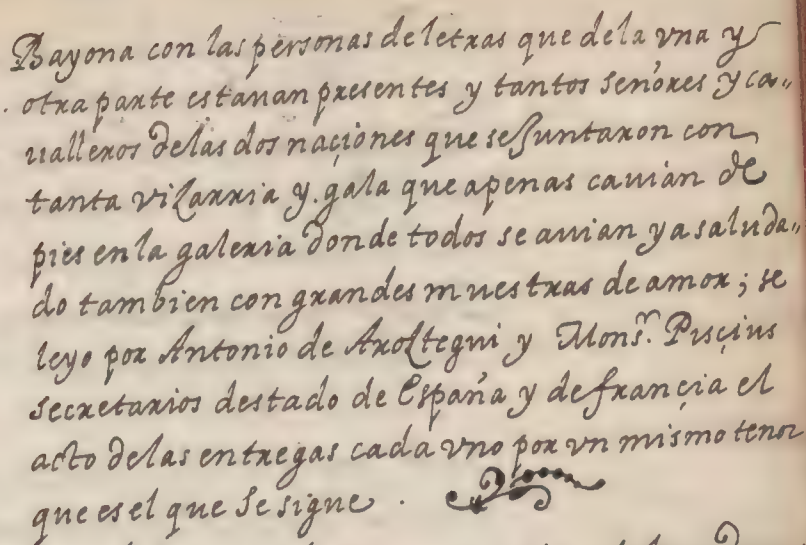 Bayona con las personas de letras que de la vna y
otra parte estauan presentes y tantos señores y ca„
ualleros de las dos naçiones que se Juntaron con
tanta vizarria y gala que apenas cauian de
pies en la galeria donde todos se auian ya saluda„
do tambien con grandes muestras de amor; se
leyo por Antonio de Aroztegui y Monsr. Pusçius
secretarios destado de España y de françia el
acto de las entregas cada vno por vn mismo tenor
que es el que se sigue .